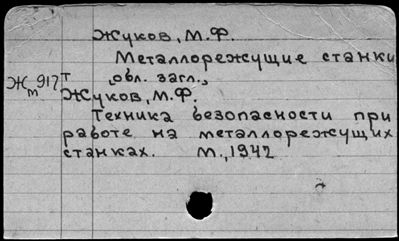 Жуков, М.Ф.
Металлорежущие станки
Ж 917 т
m
,обл. загл.,
Жуков, М.Ф.
Техника безопасности при
работе на металлорежущих
станках. М., 1942